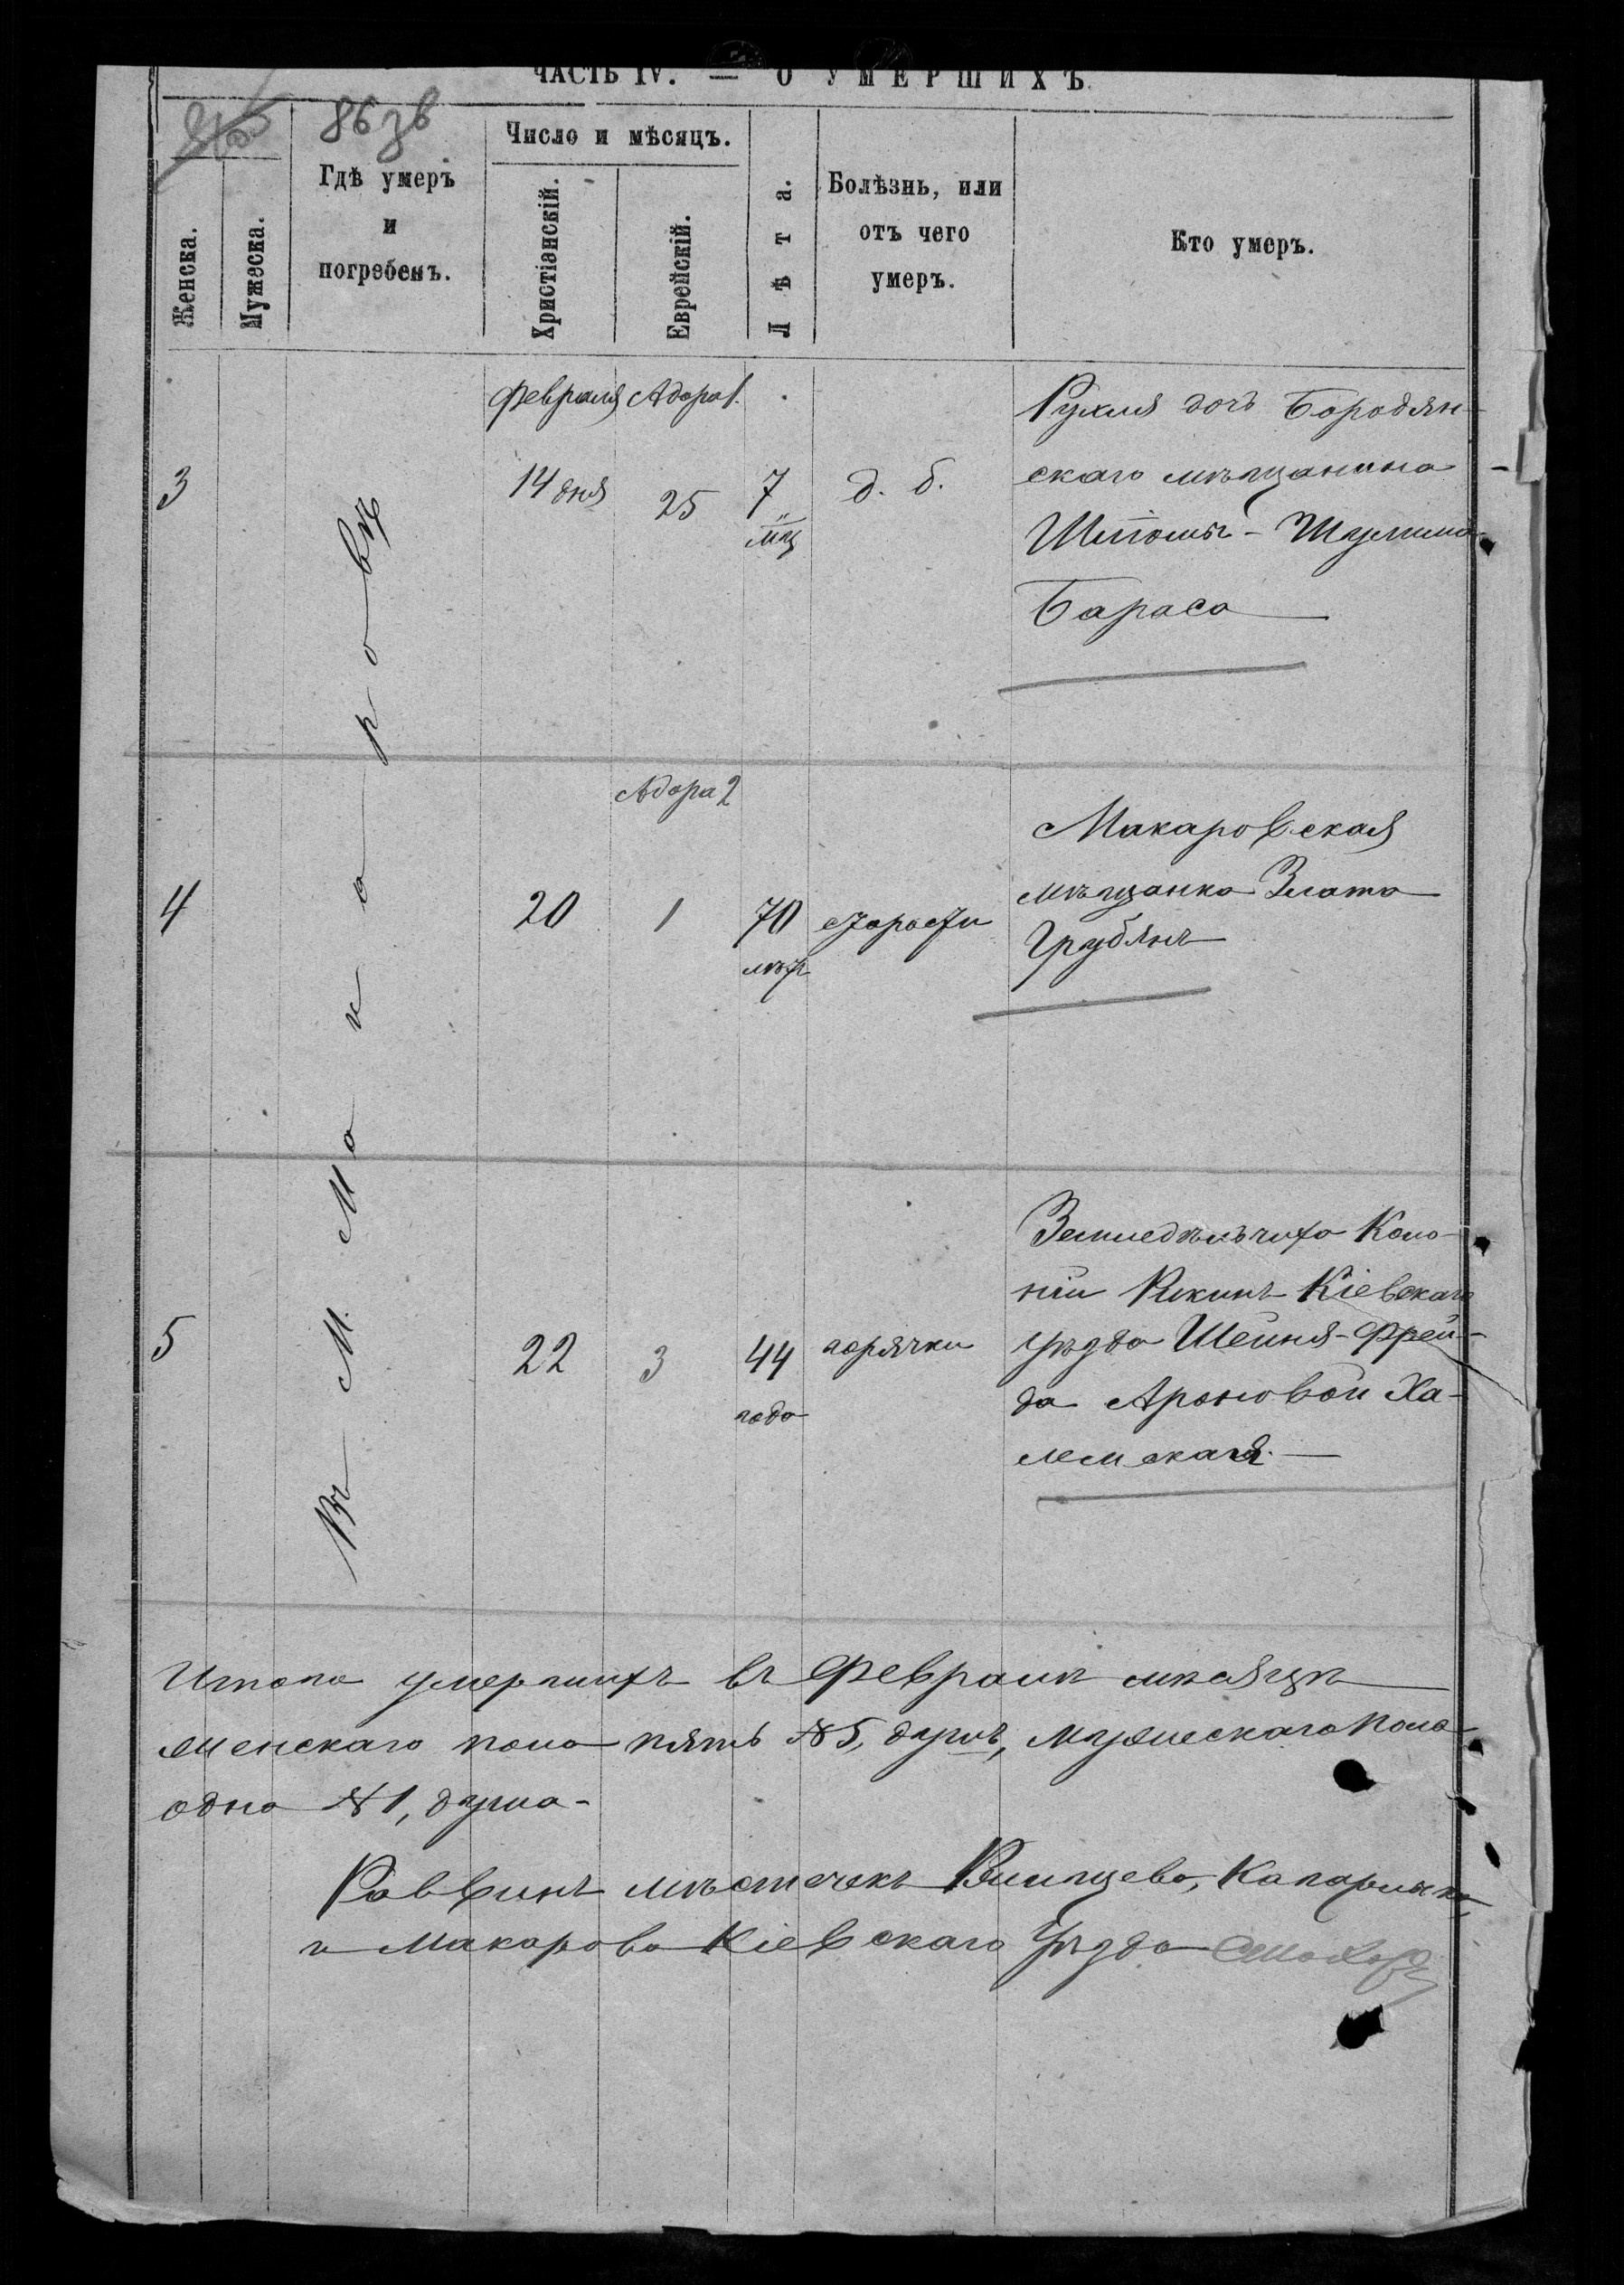 ЧАСТЬ IV. — О УМЕРШИХЪ.
86 зв
Женска.
Мужеска.
Гдѣ умеръ
и
погребенъ.
Число и мѣсяцъ.
Христіанскій.
Еврейскій.
Лѣта.
Болѣзнь, или
отъ чего
умеръ.
Кто умеръ.
Въ М. Макаровѣ
Февраля Адора 1.
3 14 дня 25 7 мц д. б.
Рухля дочь Бородян-
скаго мѣщанина
Шліомы-Шулима
Бараса
Адора 2
4 20 1 70 лѣтъ старости
Макаровская
мѣщанка Злата
Грубянъ
5 22 3 44 года горячки
Земледѣльчиха Коло-
ніи Рыкинъ Кіевскаго
уѣзда Шейня-Фрей-
да Ароновой Ха-
лемская.
Итого умершихъ въ Февралѣ мѣсяцѣ
женскаго пола пять № 5, душъ, мужескаго пола
одна № 1, душа-
Раввинъ мѣстечекъ Кагарлыка,
и Макарова Кіевскаго уѣзда